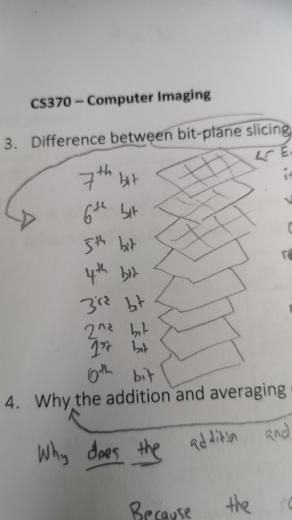 CS370 – Computer Imaging
3. Difference between bit-plane slicing
7th bit
6th bit
5th bit
4th bit
3rd bt
2nd bit
1st bit
0th bit
4. Why the addition and averaging
Why does the addition and
Because the